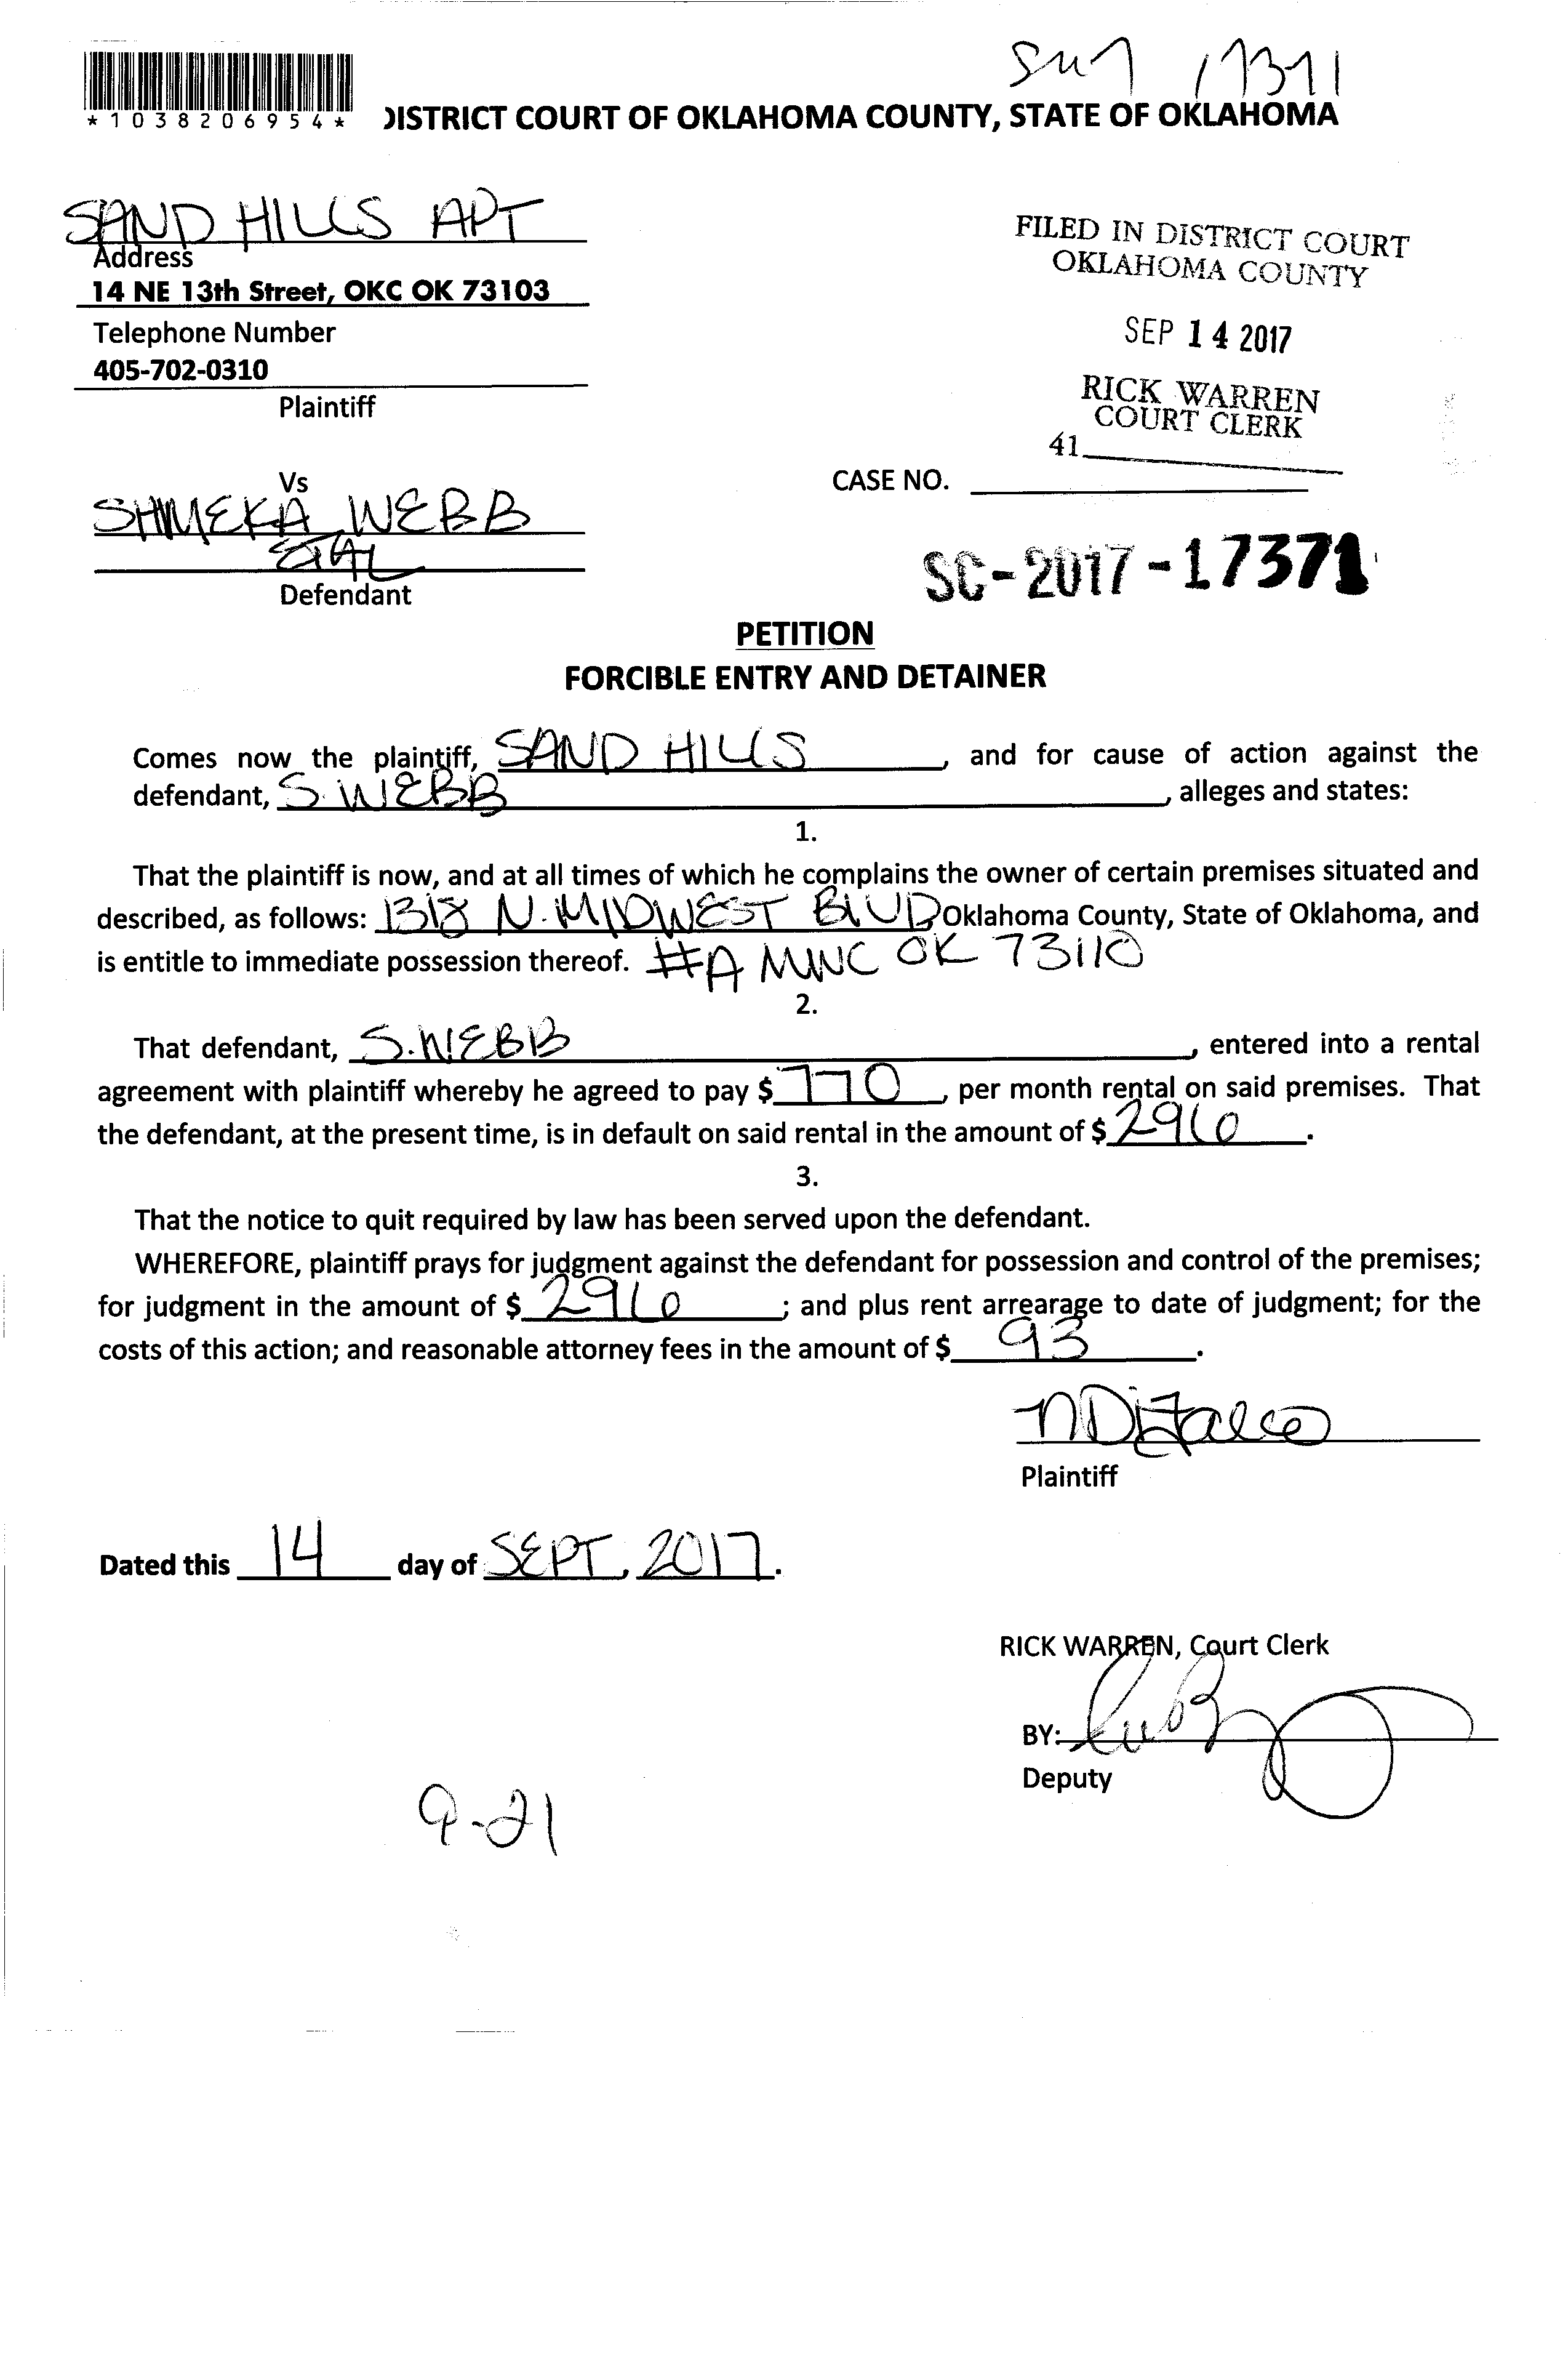 *1038206954*
DISTRICT COURT OF OKLAHOMA COUNTY, STATE OF OKLAHOMA
SAND HILLS APT
Address
14 NE 13th Street, OKC OK 73103
Telephone Number
405-702-0310
Plaintiff
FILED IN DISTRICT COURT
OKLAHOMA COUNTY
SEP 14 2017
RICK WARREN
COURT CLERK
41
Vs
CASE NO.
SHMEKA WEBB
ETAL
Defendant
SC-2017-17371
PETITION
FORCIBLE ENTRY AND DETAINER
Comes now the plaintiff, SAND HILLS, and for cause of action against the
defendant, S. WEBB, alleges and states:
1.
That the plaintiff is now, and at all times of which he complains the owner of certain premises situated and
described, as follows: 1318 N. MIDWEST BLVD Oklahoma County, State of Oklahoma, and
is entitle to immediate possession thereof. #A MWC OK 73110
2.
That defendant, S. WEBB, entered into a rental
agreement with plaintiff whereby he agreed to pay $ 770, per month rental on said premises. That
the defendant, at the present time, is in default on said rental in the amount of $ 296.
3.
That the notice to quit required by law has been served upon the defendant.
WHEREFORE, plaintiff prays for judgment against the defendant for possession and control of the premises;
for judgment in the amount of $ 296; and plus rent arrearage to date of judgment; for the
costs of this action; and reasonable attorney fees in the amount of $ 93.
Plaintiff
Dated this 14 day of SEPT, 2017.
RICK WARREN, Court Clerk
BY:
Deputy
9-21